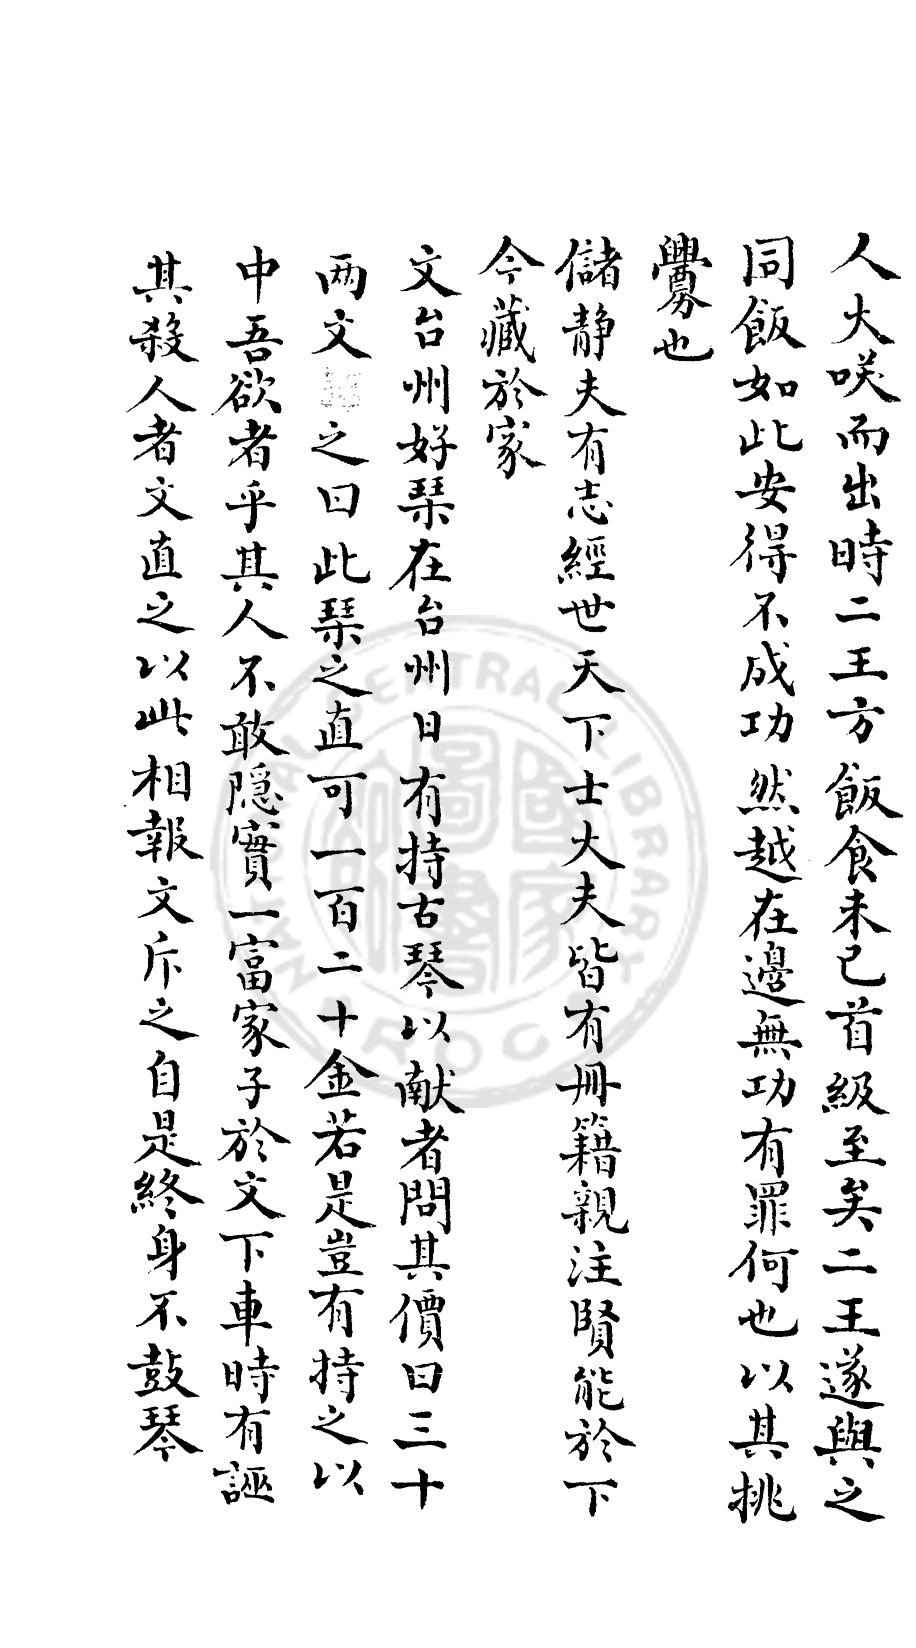 人大咲而出時二王方飯食未已首級至矣二王遂與之
同飯如此安得不成功然越在邊無功有罪何也以其挑
釁也
儲静夫有志經世天下士大夫皆有冊籍親注賢能於下
今藏於家
文台州好琹在台州日有持古琴以献者問其價曰三十
两文之曰此琹之直可一百二十金若是豈有持之以
中吾欲者乎其人不敢隠實一富家子於文下車時有誣
其殺人者文直之以此相報文斥之自是終身不鼓琴
NATIONAL CENTRAL LIBRARY
ROC
國家圖書館